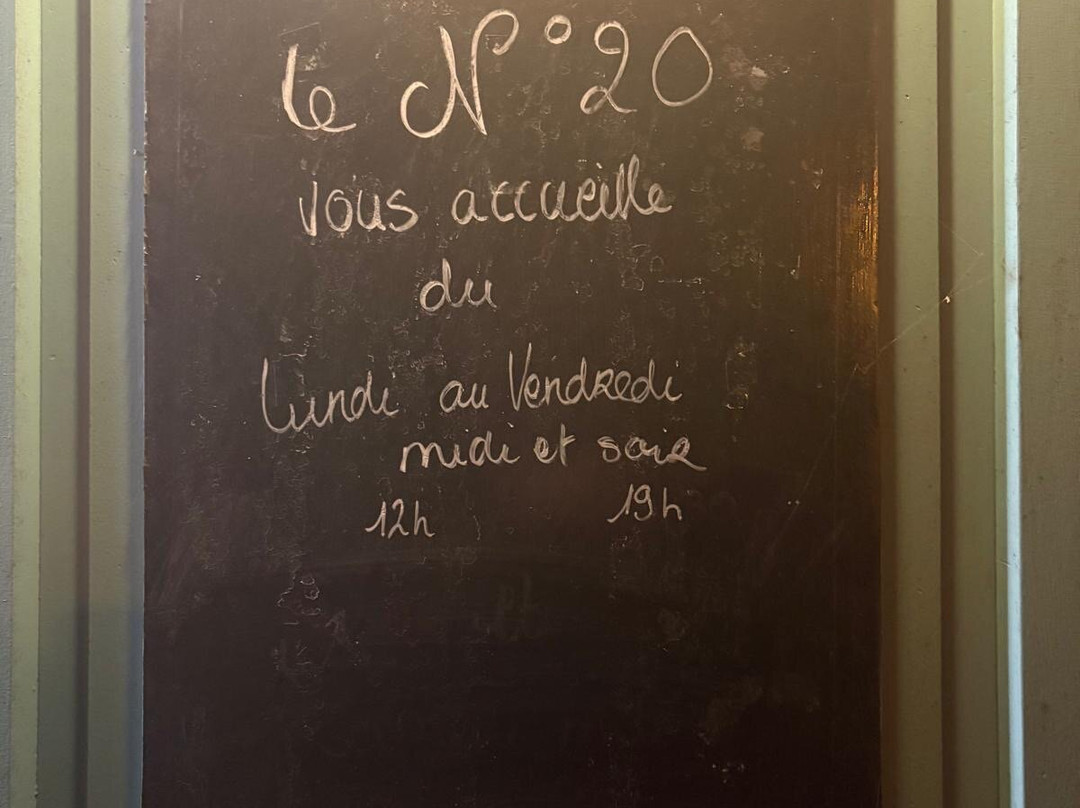 Le N°20
vous accueille
du
Lundi au Vendredi
midi et soir
12h 19h